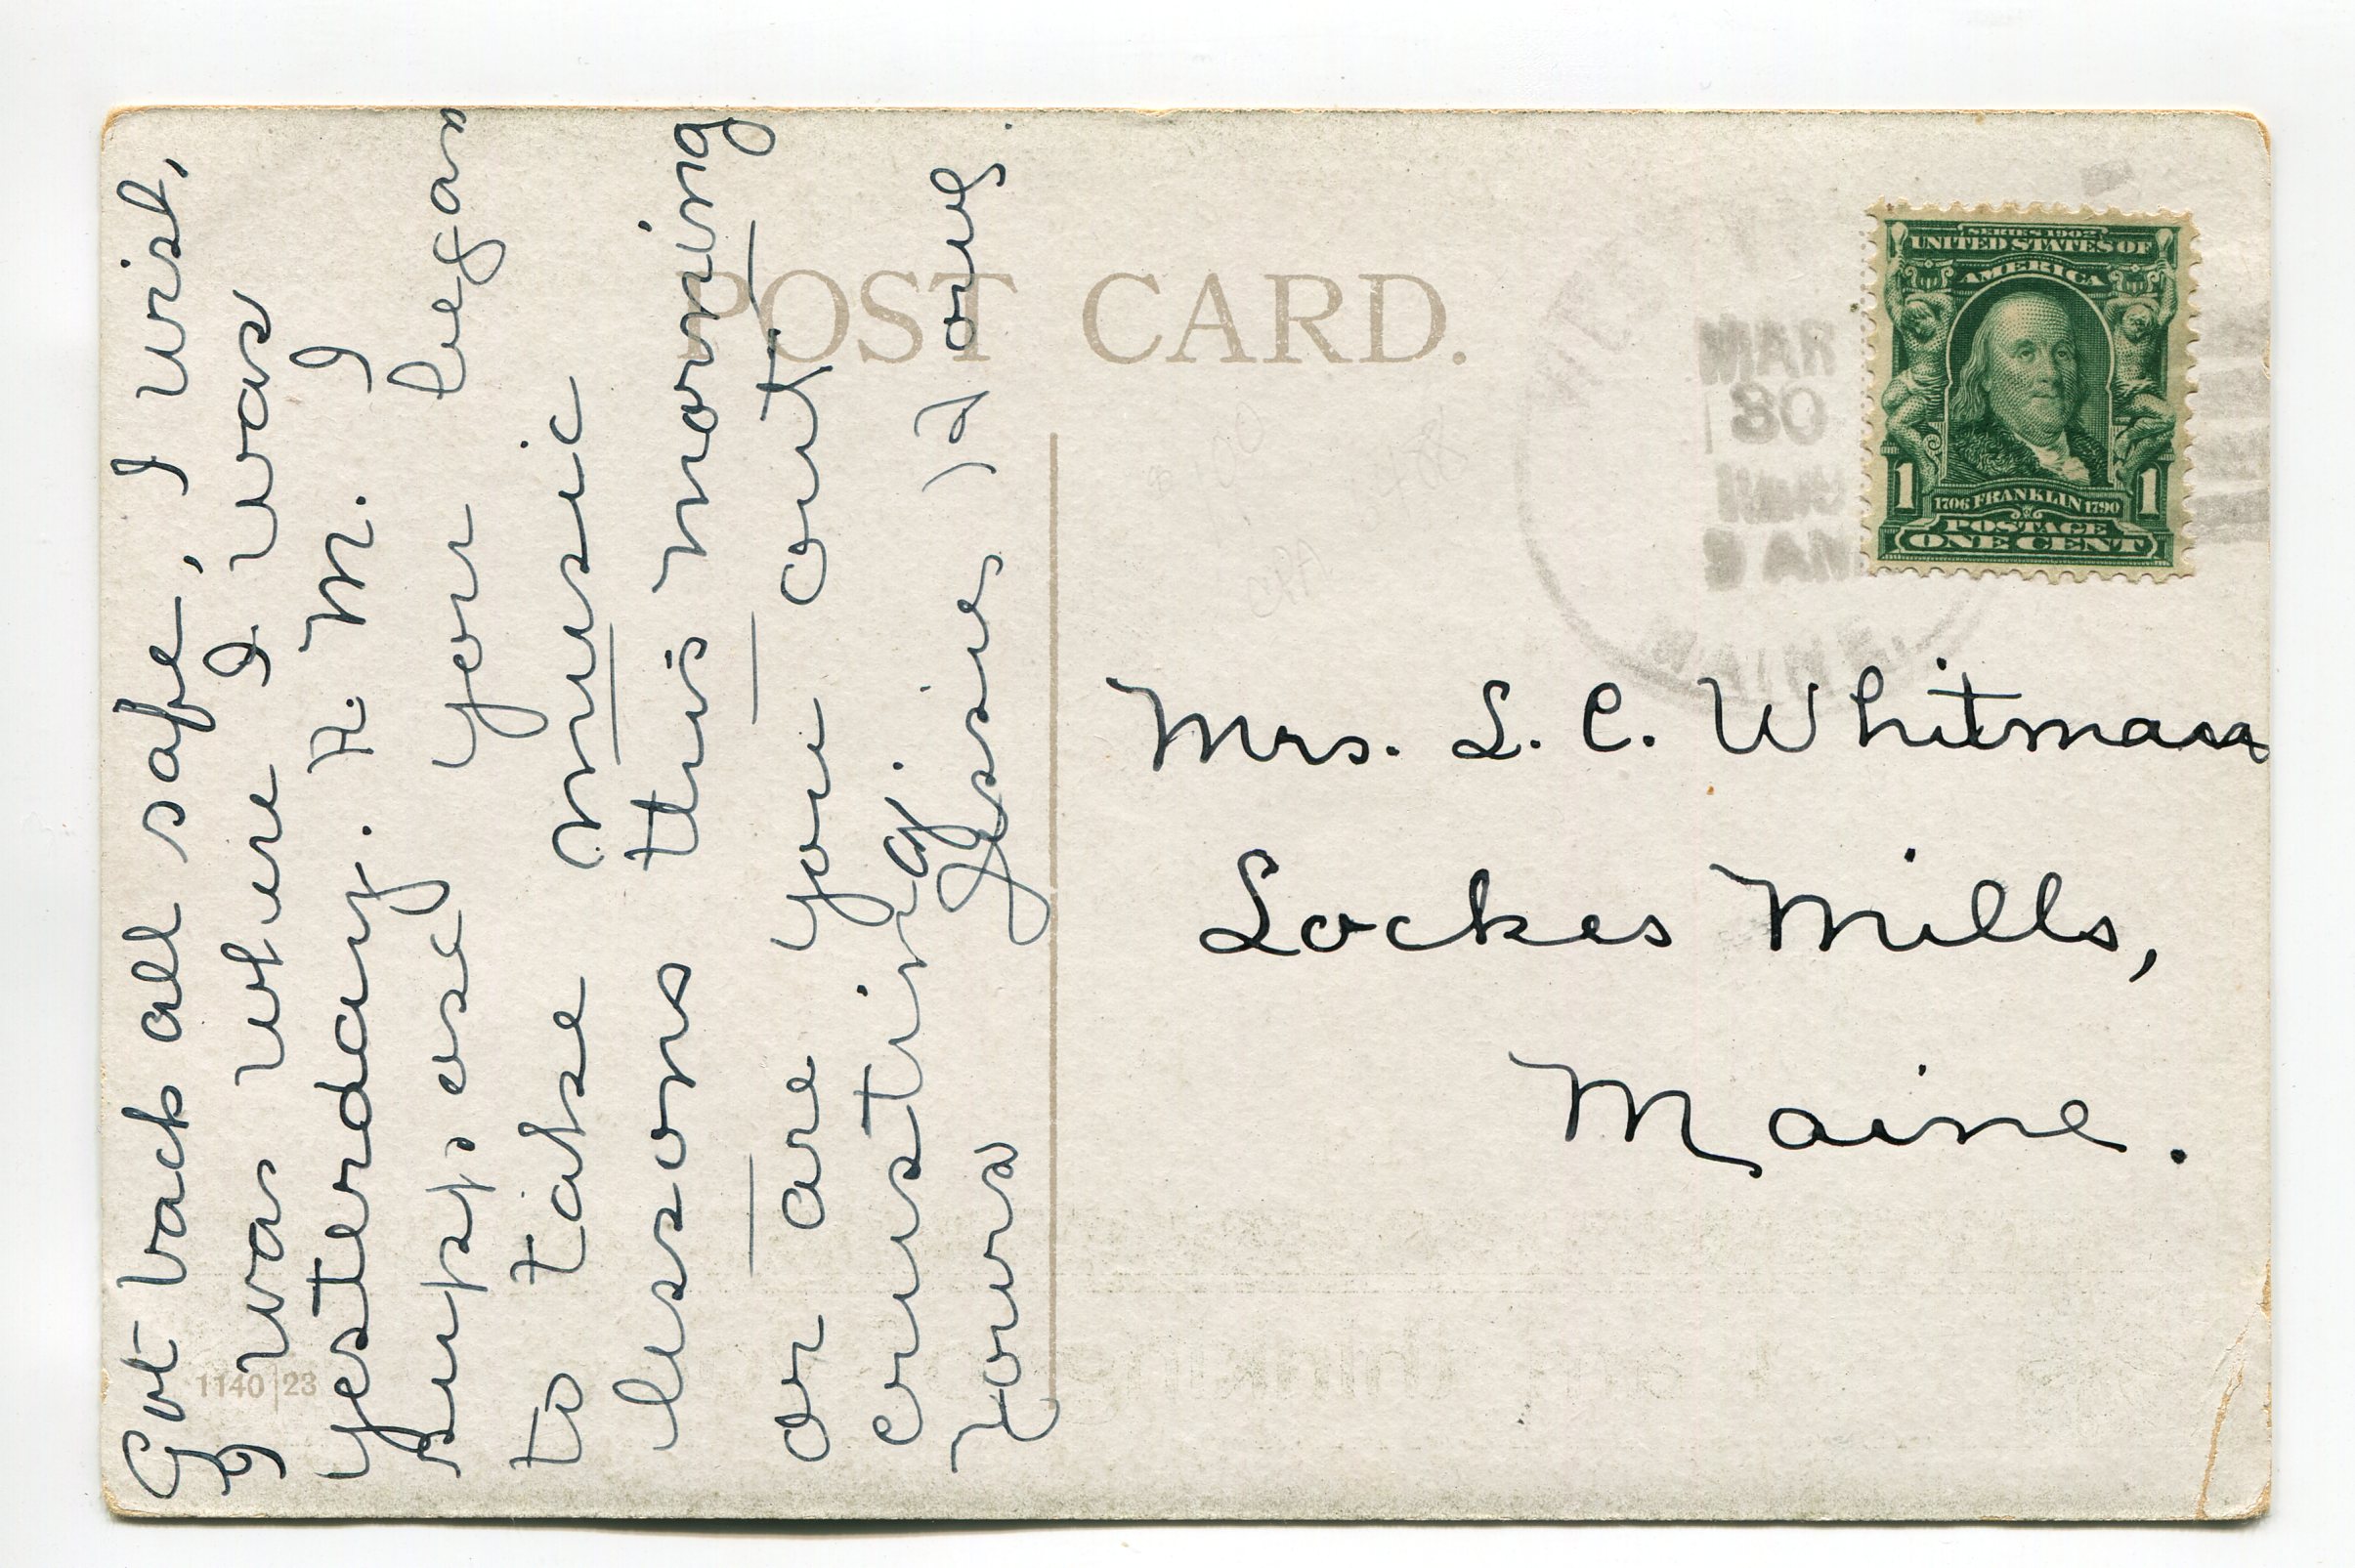 Got back all safe, I wish,
I was where I was
yesterday. A. M. I
suppose you began
to take music
lessons this morning
or are you out
cruising.
Yours Jessie
POST CARD.
1140 23
SERIES 1902
UNITED STATES OF
AMERICA
1 1
1706 FRANKLIN 1790
POSTAGE
ONE CENT
MAR
30
Mrs. L. C. Whitman
Lockes Mills,
Maine.